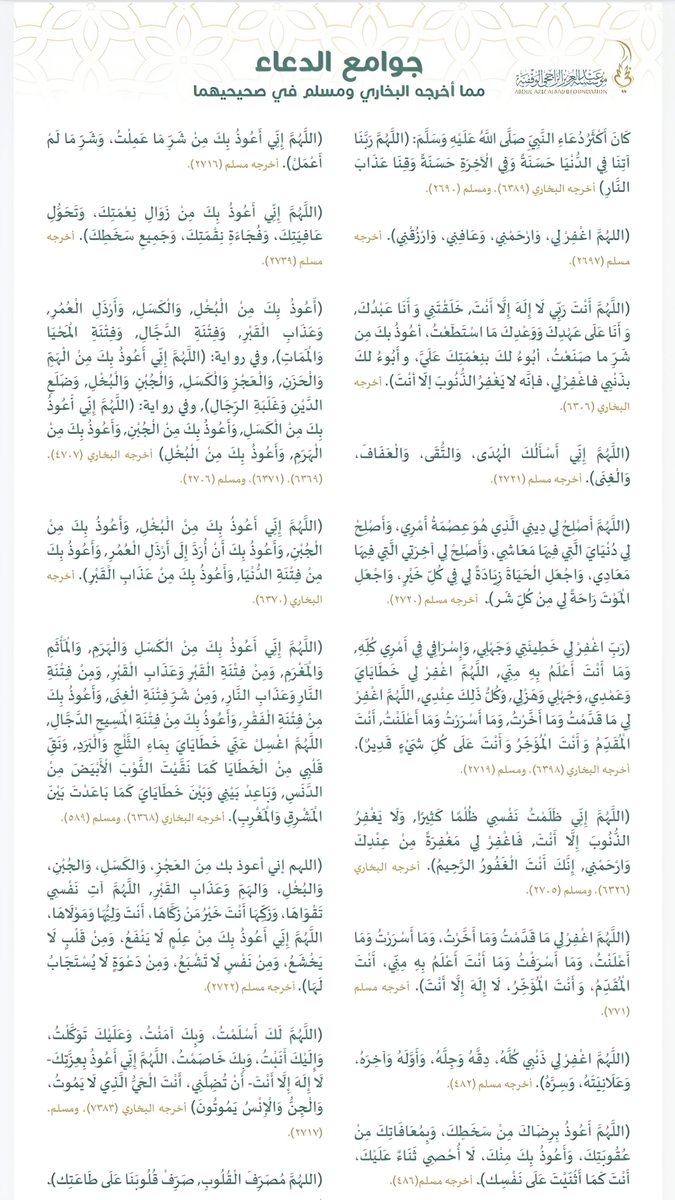 جوامع الدعاء
مما أخرجه البخاري ومسلم في صحيحيهما
مؤسسة عبدالعزيز الراجحي الوقفية
كَانَ أَكْثَرُ دُعَاءِ النَّبِيِّ صَلَّى اللَّهُ عَلَيْهِ وَسَلَّمَ: (اللَّهُمَّ رَبَّنَا
آتِنَا فِي الدُّنْيَا حَسَنَةً وَفِي الْآخِرَةِ حَسَنَةً وَقِنَا عَذَابَ
النَّارِ) أخرجه البخاري (٦٣٨٩)، ومسلم (٢٦٩٠).
(اللهُمَّ اغْفِرْ لِي، وَارْحَمْنِي، وَعَافِنِي، وَارْزُقْنِي). أخرجه
مسلم (٢٦٩٧).
(اللَّهُمَّ أَنْتَ رَبِّي لَا إِلَهَ إِلَّا أَنْتَ, خَلَقْتَنِي وَأَنَا عَبْدُكَ,
وَأَنَا عَلَى عَهْدِكَ وَوَعْدِكَ مَا اسْتَطَعْتُ، أعُوذُ بكَ مِن
شَرِّ ما صَنَعْتُ، أَبُوءُ لكَ بنِعْمَتِكَ عَلَيَّ، وأَبُوءُ لكَ
بذَنْبِي فاغْفِرْلِي، فإنَّه لا يَغْفِرُ الذُّنُوبَ إلَّا أنْتَ). أخرجه
البخاري (٦٣٠٦).
(اللَّهُمَّ إِنِّي أَسْأَلُكَ الْهُدَى، وَالتُّقَى، وَالْعَفَافَ،
وَالْغِنَى). أخرجه مسلم (٢٧٢١).
(اللَّهُمَّ أَصْلِحْ لِي دِينِي الَّذِي هُوَ عِصْمَةُ أَمْرِي، وَأَصْلِحْ
لِي دُنْيَايَ الَّتِي فِيهَا مَعَاشِي، وَأَصْلِحْ لِي آخِرَتِي الَّتِي فِيهَا
مَعَادِي، وَاجْعَلِ الْحَيَاةَ زِيَادَةً لِي فِي كُلِّ خَيْرٍ، وَاجْعَلِ
الْمَوْتَ رَاحَةً لِي مِنْ كُلِّ شَرٍ). أخرجه مسلم (٢٧٢٠).
(رَبِّ اغْفِرْ لِي خَطِيئَتِي وَجَهْلِي, وَإِسْرَافِي فِي أَمْرِي كُلِّهِ,
وَمَا أَنْتَ أَعْلَمُ بِهِ مِنِّي, اللَّهُمَّ اغْفِرْ لِي خَطَايَايَ
وَعَمْدِي, وَجَهْلِي وَهَزْلِي, وَكُلُّ ذَلِكَ عِنْدِي, اللَّهُمَّ اغْفِرْ
لِي مَا قَدَّمْتُ وَمَا أَخَّرْتُ, وَمَا أَسْرَرْتُ وَمَا أَعْلَنْتُ, أَنْتَ
الْمُقَدِّمُ وَأَنْتَ الْمُؤَخِّرُ وَأَنْتَ عَلَى كُلِّ شَيْءٍ قَدِيرٌ).
أخرجه البخاري (٦٣٩٨)، ومسلم (٢٧١٩).
(اللَّهُمَّ إِنِّي ظَلَمْتُ نَفْسِي ظُلْمًا كَثِيرًا, وَلَا يَغْفِرُ
الذُّنُوبَ إِلَّا أَنْتَ, فَاغْفِرْ لِي مَغْفِرَةً مِنْ عِنْدِكَ
وَارْحَمْنِي, إِنَّكَ أَنْتَ الْغَفُورُ الرَّحِيمُ). أخرجه البخاري
(٦٣٢٦)، ومسلم (٢٧٠٥).
(اللَّهُمَّ اغْفِرْ لِي مَا قَدَّمْتُ وَمَا أَخَّرْتُ، وَمَا أَسْرَرْتُ وَمَا
أَعْلَنْتُ، وَمَا أَسْرَفْتُ وَمَا أَنْتَ أَعْلَمُ بِهِ مِنِّي، أَنْتَ
الْمُقَدِّمُ، وَأَنْتَ الْمُؤَخِّرُ، لَا إِلَهَ إِلَّا أَنْتَ). أخرجه مسلم
(٧٧١).
(اللَّهُمَّ اغْفِرْ لِي ذَنْبِي كُلَّهُ، دِقَّهُ وَجِلَّهُ، وَأَوَّلَهُ وَآخِرَهُ،
وَعَلَانِيَتَهُ، وَسِرَّهُ). أخرجه مسلم (٤٨٢).
(اللَّهُمَّ أَعُوذُ بِرِضَاكَ مِنْ سَخَطِكَ، وَبِمُعَافَاتِكَ مِنْ
عُقُوبَتِكَ، وَأَعُوذُ بِكَ مِنْكَ، لَا أُحْصِي ثَنَاءً عَلَيْكَ،
أَنْتَ كَمَا أَثْنَيْتَ عَلَى نَفْسِكَ). أخرجه مسلم(٤٨٦).
(اللَّهُمَّ إِنِّي أَعُوذُ بِكَ مِنْ شَرِّ مَا عَمِلْتُ، وَشَرِّ مَا لَمْ
أَعْمَلْ). أخرجه مسلم (٢٧١٦).
(اللَّهُمَّ إِنِّي أَعُوذُ بِكَ مِنْ زَوَالِ نِعْمَتِكَ، وَتَحَوُّلِ
عَافِيَتِكَ، وَفُجَاءَةِ نِقْمَتِكَ، وَجَمِيعِ سَخَطِكَ). أخرجه
مسلم (٢٧٣٩).
(أَعُوذُ بِكَ مِنْ الْبُخْلِ, وَالْكَسَلِ, وَأَرْذَلِ الْعُمُرِ,
وَعَذَابِ الْقَبْرِ, وَفِتْنَةِ الدَّجَّالِ, وَفِتْنَةِ الْمَحْيَا
وَالْمَمَاتِ), وفي رواية: (اللَّهُمَّ إِنِّي أَعُوذُ بِكَ مِنْ الْهَمِّ
وَالْحَزَنِ, وَالْعَجْزِ وَالْكَسَلِ, وَالْجُبْنِ وَالْبُخْلِ, وَضَلَعِ
الدَّيْنِ وَغَلَبَةِ الرِّجَالِ), وفي رواية: (اللَّهُمَّ إِنِّي أَعُوذُ
بِكَ مِنْ الْكَسَلِ, وَأَعُوذُ بِكَ مِنْ الْجُبْنِ, وَأَعُوذُ بِكَ مِنْ
الْهَرَمِ, وَأَعُوذُ بِكَ مِنْ الْبُخْلِ) أخرجه البخاري (٤٧٠٧)،
(٦٣٦٩)، (٦٣٧١)، ومسلم (٢٧٠٦).
(اللَّهُمَّ إِنِّي أَعُوذُ بِكَ مِنْ الْبُخْلِ, وَأَعُوذُ بِكَ مِنْ
الْجُبْنِ, وَأَعُوذُ بِكَ أَنْ أُرَدَّ إِلَى أَرْذَلِ الْعُمُرِ, وَأَعُوذُ بِكَ
مِنْ فِتْنَةِ الدُّنْيَا, وَأَعُوذُ بِكَ مِنْ عَذَابِ الْقَبْرِ). أخرجه
البخاري (٦٣٧٠).
(اللَّهُمَّ إِنِّي أَعُوذُ بِكَ مِنْ الْكَسَلِ وَالْهَرَمِ, وَالْمَأْثَمِ
وَالْمَغْرَمِ, وَمِنْ فِتْنَةِ الْقَبْرِ وَعَذَابِ الْقَبْرِ, وَمِنْ فِتْنَةِ
النَّارِ وَعَذَابِ النَّارِ, وَمِنْ شَرِّ فِتْنَةِ الْغِنَى, وَأَعُوذُ بِكَ
مِنْ فِتْنَةِ الْفَقْرِ, وَأَعُوذُ بِكَ مِنْ فِتْنَةِ الْمَسِيحِ الدَّجَّالِ,
اللَّهُمَّ اغْسِلْ عَنِّي خَطَايَايَ بِمَاءِ الثَّلْجِ وَالْبَرَدِ, وَنَقِّ
قَلْبِي مِنْ الْخَطَايَا كَمَا نَقَّيْتَ الثَّوْبَ الْأَبْيَضَ مِنْ
الدَّنَسِ, وَبَاعِدْ بَيْنِي وَبَيْنَ خَطَايَايَ كَمَا بَاعَدْتَ بَيْنَ
الْمَشْرِقِ وَالْمَغْرِبِ). أخرجه البخاري (٦٣٦٨)، ومسلم (٥٨٩).
(اللهم إني أعوذ بك مِنَ العَجْزِ، وَالكَسَلِ، وَالجُبْنِ،
وَالبُخْلِ، وَالهَمِّ وَعَذَابِ القَبْرِ, اللَّهُمَّ آتِ نَفْسِي
تَقْوَاهَا، وَزَكِّهَا أَنْتَ خَيْرُ مَنْ زَكَّاهَا، أَنْتَ وَلِيُّهَا وَمَوْلَاهَا،
اللَّهُمَّ إِنِّي أَعُوذُ بِكَ مِنْ عِلْمٍ لَا يَنْفَعُ، وَمِنْ قَلْبٍ لَا
يَخْشَعُ، وَمِنْ نَفْسٍ لَا تَشْبَعُ، وَمِنْ دَعْوَةٍ لَا يُسْتَجَابُ
لَهَا). أخرجه مسلم (٢٧٢٢).
(اللَّهُمَّ لَكَ أَسْلَمْتُ، وَبِكَ آمَنْتُ، وَعَلَيْكَ تَوَكَّلْتُ،
وَإِلَيْكَ أَنَبْتُ، وَبِكَ خَاصَمْتُ، اللَّهُمَّ إِنِّي أَعُوذُ بِعِزَّتِكَ-
لَا إِلَهَ إِلَّا أَنْتَ- أَنْ تُضِلَّنِي، أَنْتَ الْحَيُّ الَّذِي لَا يَمُوتُ،
وَالْجِنُّ وَالْإِنْسُ يَمُوتُونَ) أخرجه البخاري (٧٣٨٣)، ومسلم.
(٢٧١٧).
(اللهُمَّ مُصَرِّفَ الْقُلُوبِ, صَرِّفْ قُلُوبَنَا عَلَى طَاعَتِكَ).